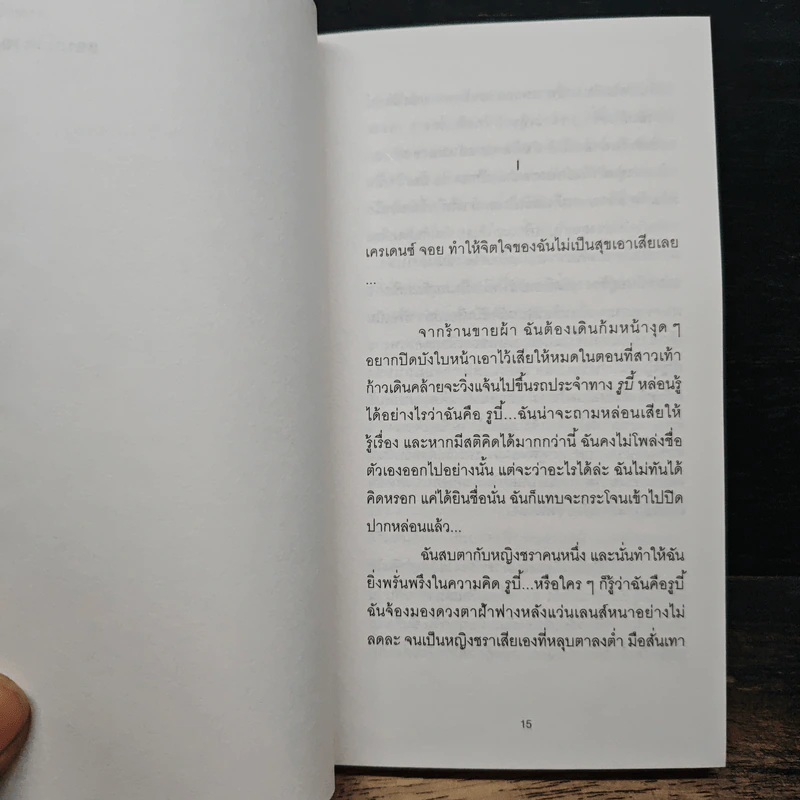 I
เครเดนซ์ จอย ทำให้จิตใจของฉันไม่เป็นสุขเอาเสียเลย
...
จากร้านขายผ้า ฉันต้องเดินก้มหน้างุด ๆ
อยากปิดบังใบหน้าเอาไว้เสียให้หมดในตอนที่สาวเท้า
ก้าวเดินคล้ายจะวิ่งแจ้นไปขึ้นรถประจำทาง รูบี้ หล่อนรู้
ได้อย่างไรว่าฉันคือ รูบี้...ฉันน่าจะถามหล่อนเสียให้
รู้เรื่อง และหากมีสติคิดได้มากกว่านี้ ฉันคงไม่โพล่งชื่อ
ตัวเองออกไปอย่างนั้น แต่จะว่าอะไรได้ล่ะ ฉันไม่ทันได้
คิดหรอก แค่ได้ยินชื่อนั่น ฉันก็แทบจะกระโจนเข้าไปปิด
ปากหล่อนแล้ว...
ฉันสบตากับหญิงชราคนหนึ่ง และนั่นทำให้ฉัน
ยิ่งพรั่นพรึงในความคิด รูบี้...หรือใคร ๆ ก็รู้ว่าฉันคือรูบี้
ฉันจ้องมองดวงตาฝ้าฟางหลังแว่นเลนส์หนาอย่างไม่
ลดละ จนเป็นหญิงชราเสียเองที่หลุบตาลงต่ำ มือสั่นเทา
15